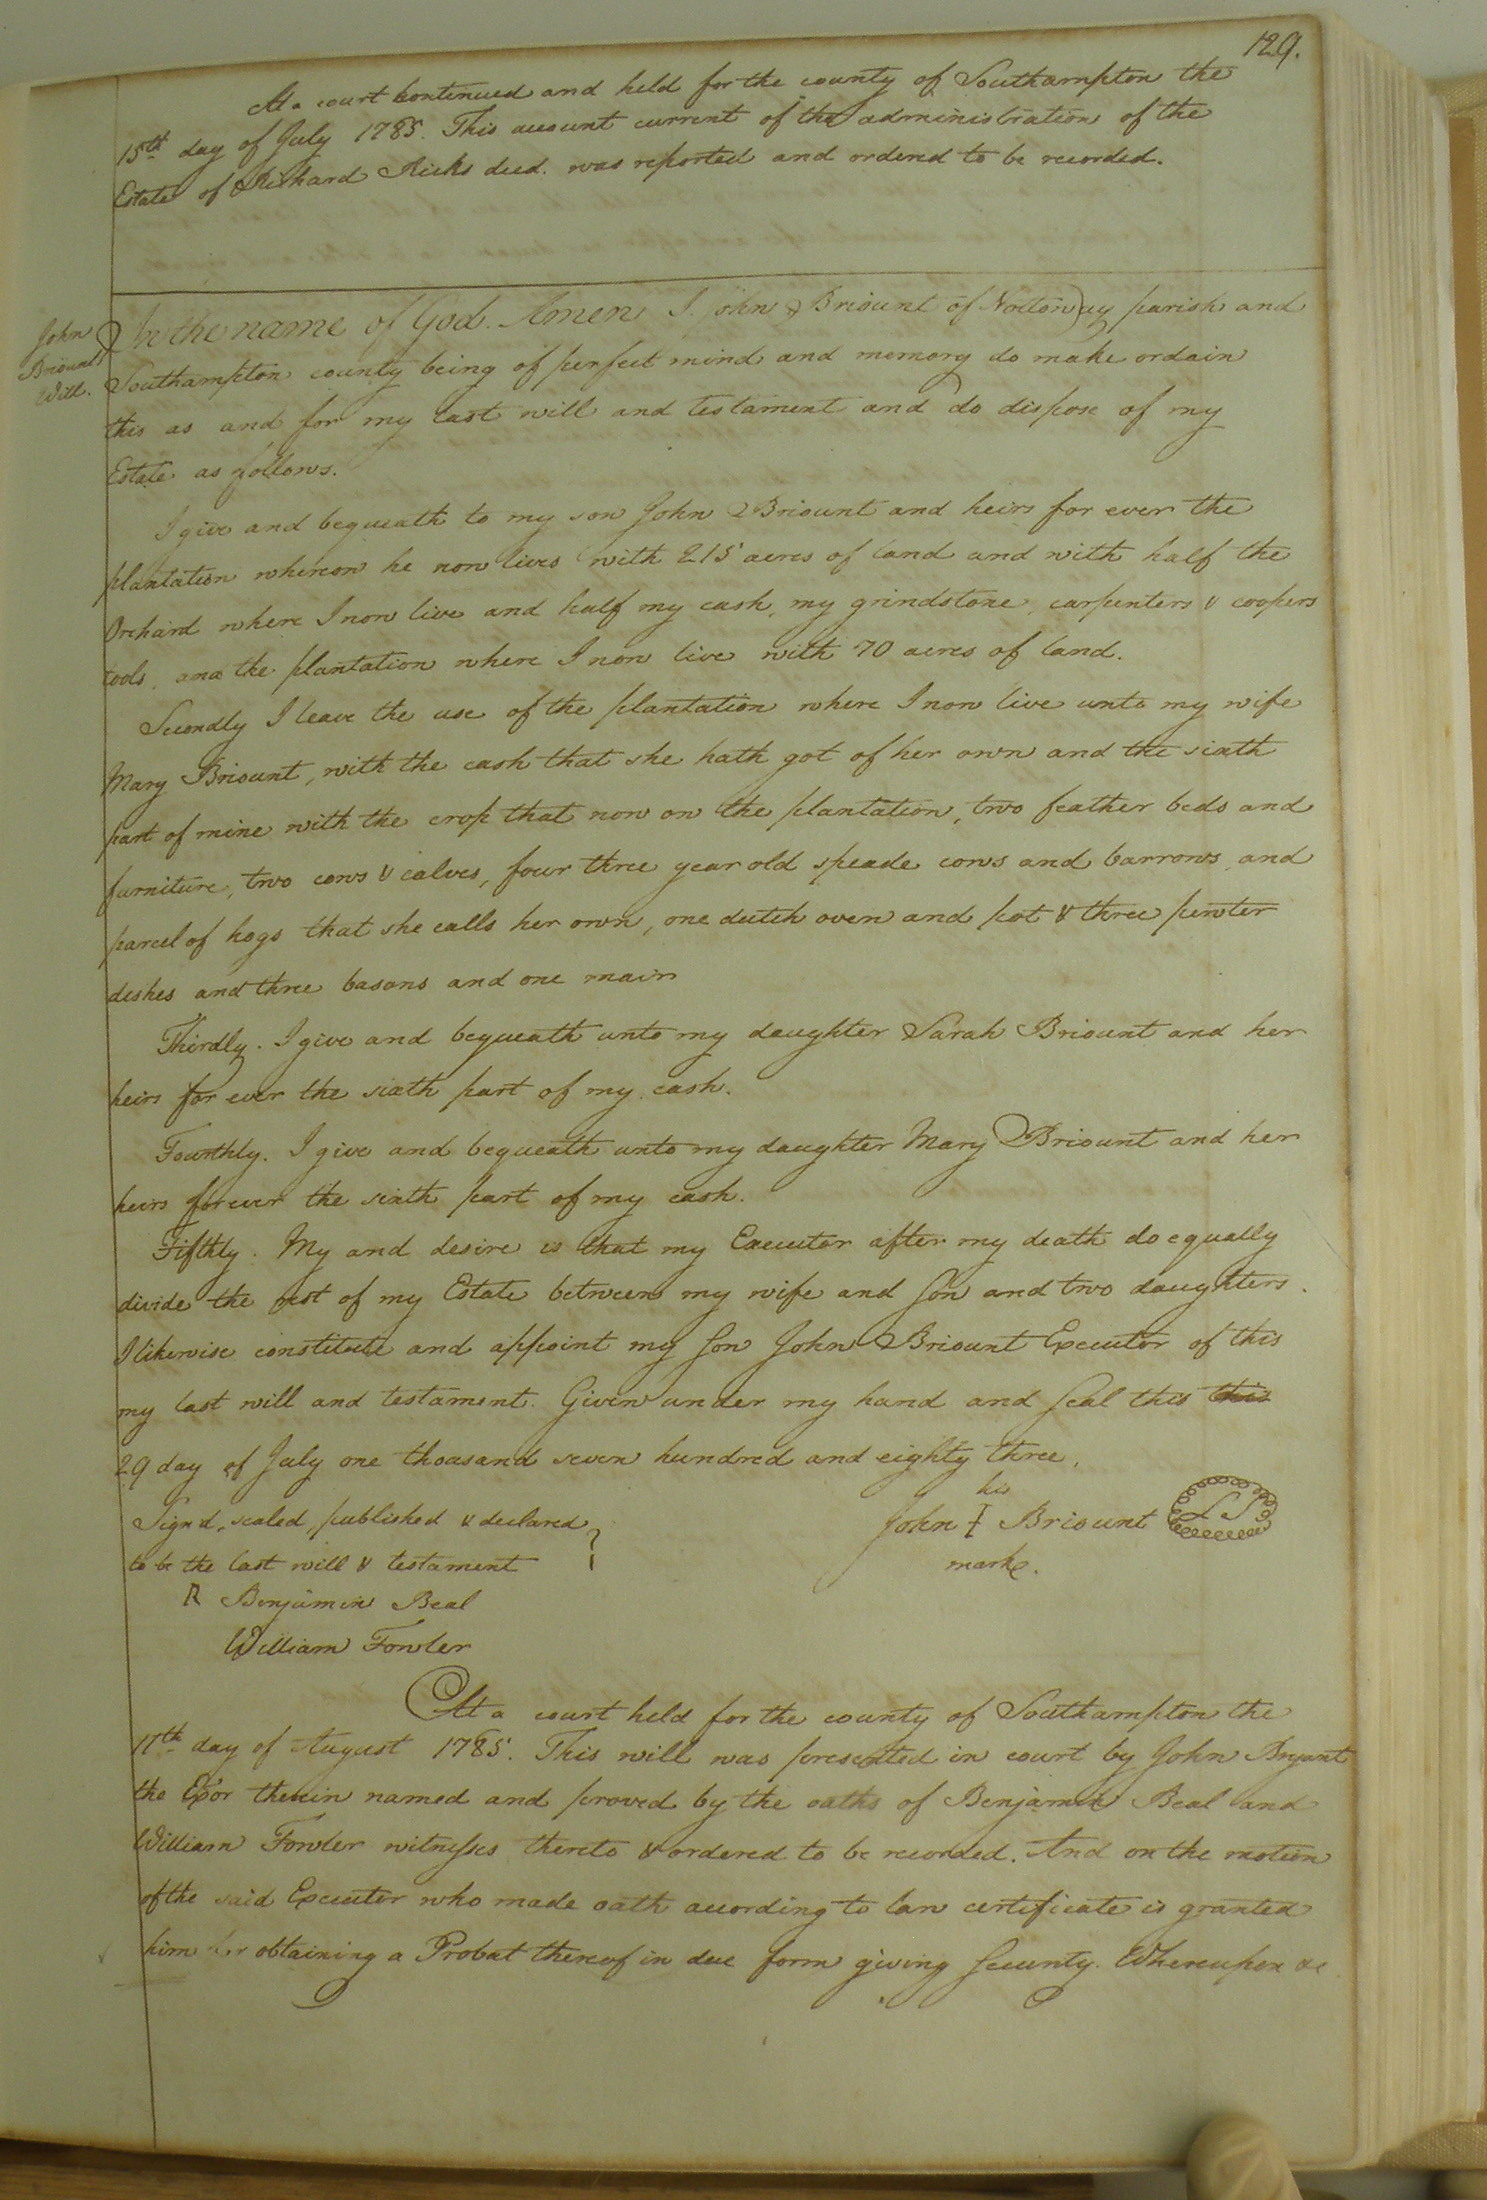 129.
At a court continued and held for the county of Southampton the
15th day of July 1785. This account current of the administration of the
Estate of Richard Ricks decd. was reported and ordered to be recorded.
John
Briount
Will.
In the name of God. Amen I. John Briount of Nottoway parish and
Southampton county being of perfect mind and memory do make ordain
this as and for my last will and testament and do dispose of my
Estate as follows.
I give and bequeath to my son John Briount and heirs for ever the
plantation whereon he now lives with 215 acres of land and with half the
Orchard where I now live and half my cash, my grindstone, carpenters & coopers
tools, and the plantation where I now live with 70 acres of land.
Secondly I leave the use of the plantation where I now live unto my wife
Mary Briount, with the cash that she hath got of her own and the sixth
part of mine with the crop that now on the plantation, two feather beds and
furniture, two cows & calves, four three year old speade cows and barrows and
parcel of hogs that she calls her own, one dutch oven and pot & three pewter
deshes and three basons and one mair
Thirdly. I give and bequeath unto my daughter Sarah Briount and her
heirs for ever the sixth part of my cash.
Fourthly. I give and bequeath unto my daughter Mary Briount and her
heirs forever the sixth part of my cash.
Fifthly. My and desire is that my Executor after my death do equally
divide the rest of my Estate between my wife and son and two daughters.
I likewise constitute and appoint my son John Briount Executor of this
my last will and testament. Given under my hand and seal this this
29 day of July one thousand seven hundred and eighty three,
his
Sign'd, sealed, published & declared
John Briount LS
to be the last will & testament
mark.
R Benjamin Beal
William Fowler
At a court held for the county of Southampton the
11th day of August 1785. This will was presented in court by John Bryant
the Exor therein named and proved by the oaths of Benjamin Beal and
William Fowler witnesses thereto & ordered to be recorded. And on the motion
of the said Executor who made oath according to law certificate is granted
him for obtaining a Probat thereof in due form giving security. Whereupon &c